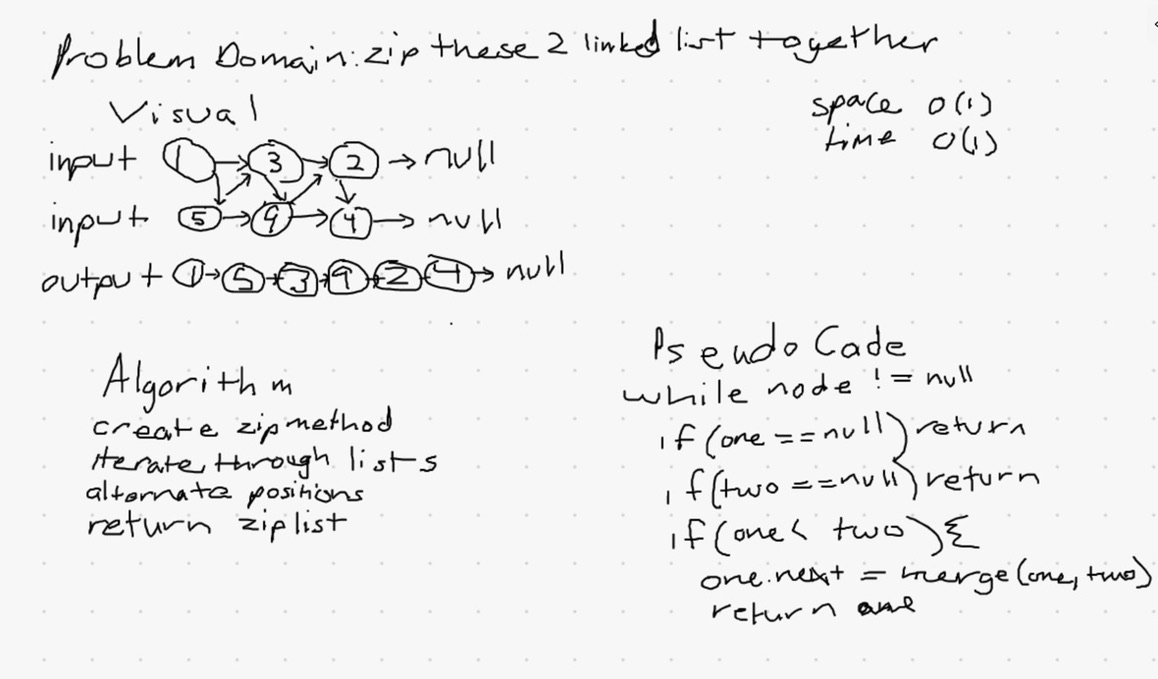 Problem Domain: zip these 2 linked list together
Visual
space O(1)
time O(1)
input 1 → 3 → 2 → null
input 5 → 9 → 4 → null
output 1 → 5 → 3 → 9 → 2 → 4 → null
Algorithm
create zip method
iterate through lists
alternate positions
return ziplist
Pseudo Code
while node != null
if (one == null) return
if (two == null) return
if (one < two) {
one.next = merge(one, two)
return one